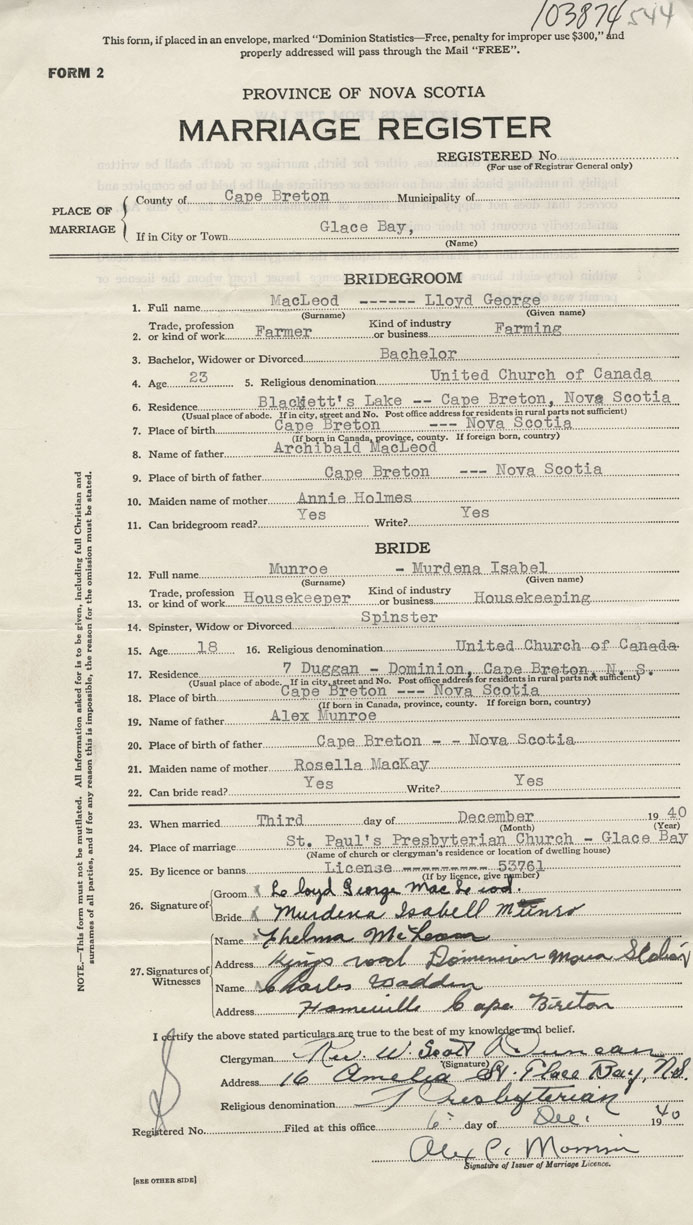 103874 544
This form, if placed in an envelope, marked "Dominion Statistics—Free, penalty for improper use $300," and
properly addressed will pass through the Mail "FREE".
FORM 2
PROVINCE OF NOVA SCOTIA
MARRIAGE REGISTER
REGISTERED No.
(For use of Registrar General only)
PLACE OF MARRIAGE
County of Cape Breton Municipality of
If in City or Town Glace Bay,
(Name)
BRIDEGROOM
1. Full name MacLeod ------ Lloyd George
(Surname) (Given name)
2. Trade, profession or kind of work Farmer Kind of industry or business Farming
3. Bachelor, Widower or Divorced Bachelor
4. Age 23 5. Religious denomination United Church of Canada
6. Residence Blackett's Lake -- Cape Breton, Nova Scotia
(Usual place of abode. If in city, street and No. Post office address for residents in rural parts not sufficient)
7. Place of birth Cape Breton --- Nova Scotia
(If born in Canada, province, county. If foreign born, country)
8. Name of father Archibald MacLeod
9. Place of birth of father Cape Breton --- Nova Scotia
10. Maiden name of mother Annie Holmes
11. Can bridegroom read? Yes Write? Yes
BRIDE
12. Full name Munroe - Murdena Isabel
(Surname) (Given name)
13. Trade, profession or kind of work Housekeeper Kind of industry or business Housekeeping
14. Spinster, Widow or Divorced Spinster
15. Age 18 16. Religious denomination United Church of Canada
17. Residence 7 Duggan - Dominion, Cape Breton, N. S.
(Usual place of abode. If in city, street and No. Post office address for residents in rural parts not sufficient)
18. Place of birth Cape Breton --- Nova Scotia
(If born in Canada, province, county. If foreign born, country)
19. Name of father Alex Munroe
20. Place of birth of father Cape Breton - - Nova Scotia
21. Maiden name of mother Rosella MacKay
22. Can bride read? Yes Write? Yes
23. When married Third day of December 1940
(Month) (Year)
24. Place of marriage St. Paul's Presbyterian Church - Glace Bay
(Name of church or clergyman's residence or location of dwelling house)
25. By licence or banns License --------- 53761
(If by licence, give number)
26. Signature of
Groom Lloyd George MacLeod.
Bride Murdena Isabell Munro
27. Signatures of Witnesses
Name Thelma McLean
Address Kings road Dominion Nova Scotia
Name Charles Wadden
Address Homeville Cape Breton
I certify the above stated particulars are true to the best of my knowledge and belief.
Clergyman Rev. W. Scott Duncan
(Signature)
Address 16 Amelia St. Glace Bay, N.S.
Religious denomination Presbyterian
Registered No. Filed at this office 6 day of Dec. 1940
Alex C.
Signature of Issuer of Marriage Licence.
[SEE OTHER SIDE]
NOTE.—This form must not be mutilated. All information asked for is to be given, including full Christian and
surnames of all parties, and if for any reason this is impossible, the reason for the omission must be stated.